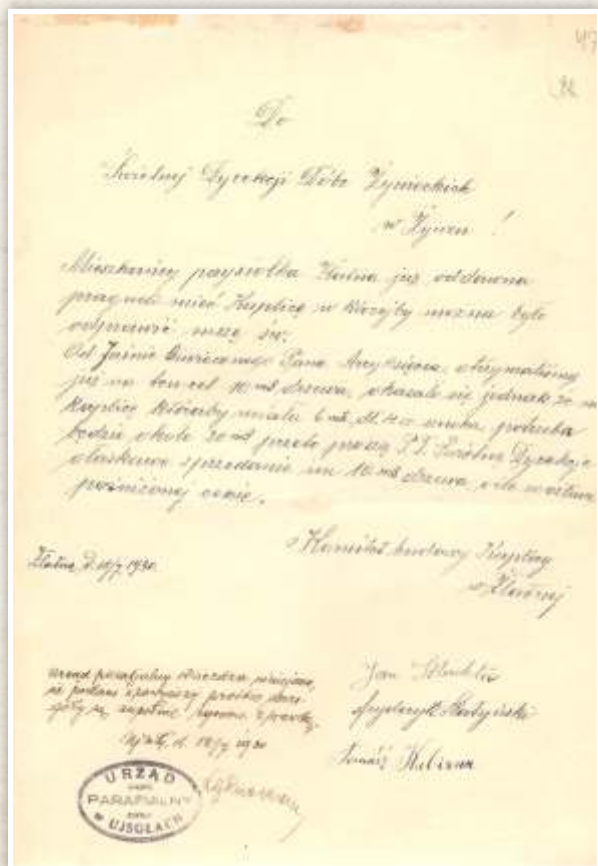 47
22
Do
Świetnej Dyrekcji Dóbr Żywieckich
w Żywcu !
Mieszkańcy przysiołka Złatna już oddawna
pragnęli mieć Kaplicę w którejby można było
odprawić mszę św.
Od Jaśnie Oświeconego Pana Arcyksięcia otrzymaliśmy
już na ten cel 10 m3 drzewa, okazało się jednak że na
Kaplicę któraby miała 6 m dł. 4 szerok. potrzeba
będzie około 20 m3 przeto proszą P.T. Świetną Dyrekcję
o łaskawe sprzedanie im 10 m3 drzewa, o ile możliwe po
zniżonej cenie.
Komitet budowy Kaplicy
w Złatnej
Złatna, d. 1930.
Urząd parafialny stwierdza niniejszem,
że podane powyższej prośbie
są zupełnie zgodne z prawdą.
d. 1930
Jan
Fryderyk
Tomasz Kubica
URZĄD
PARAFIALNY
w UJSOŁACH